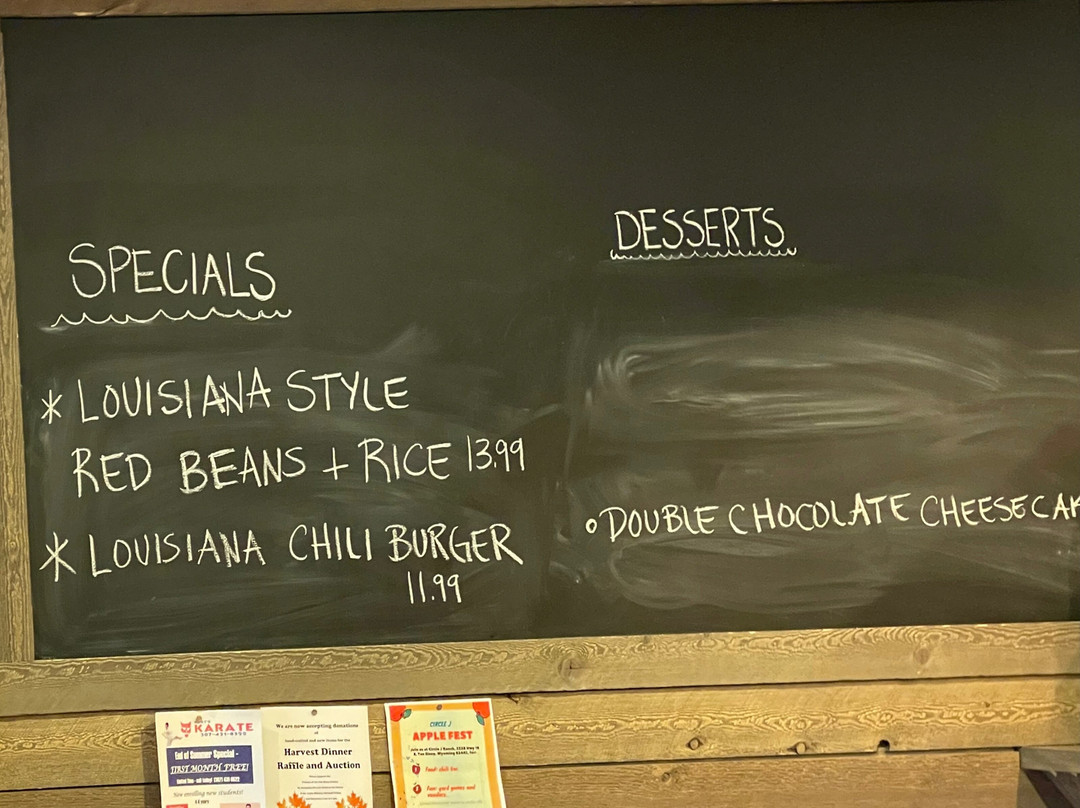 SPECIALS
* LOUISIANA STYLE
RED BEANS + RICE 13.99
* LOUISIANA CHILI BURGER
11.99
DESSERTS
• DOUBLE CHOCOLATE CHEESECAK
KARATE
End of Summer Special -
FIRST MONTH FREE!
We are now accepting donations
of
Harvest Dinner
Raffle and Auction
CIRCLE J
APPLE FEST